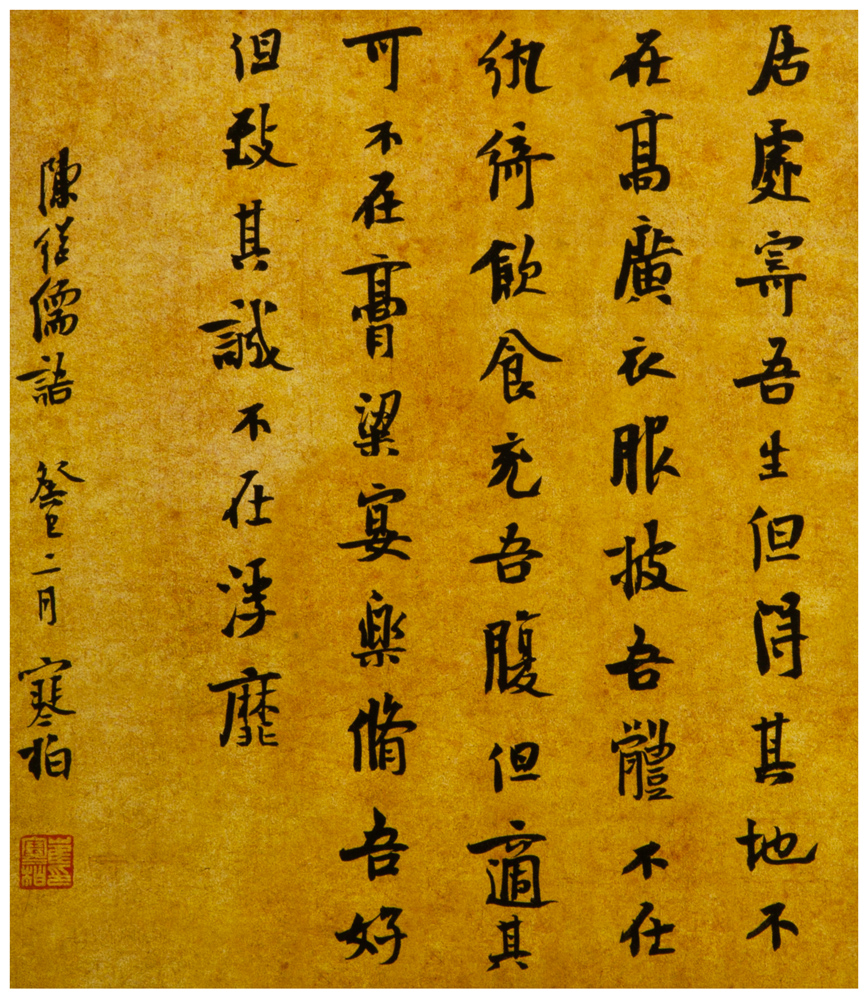 居處寄吾生但得其地不
在高廣衣服披吾體不在
紈綺飲食充吾腹但適其
可不在膏粱宴樂脩吾好
但致其誠不在浮靡
陳继儒語 癸巳二月 寒柏